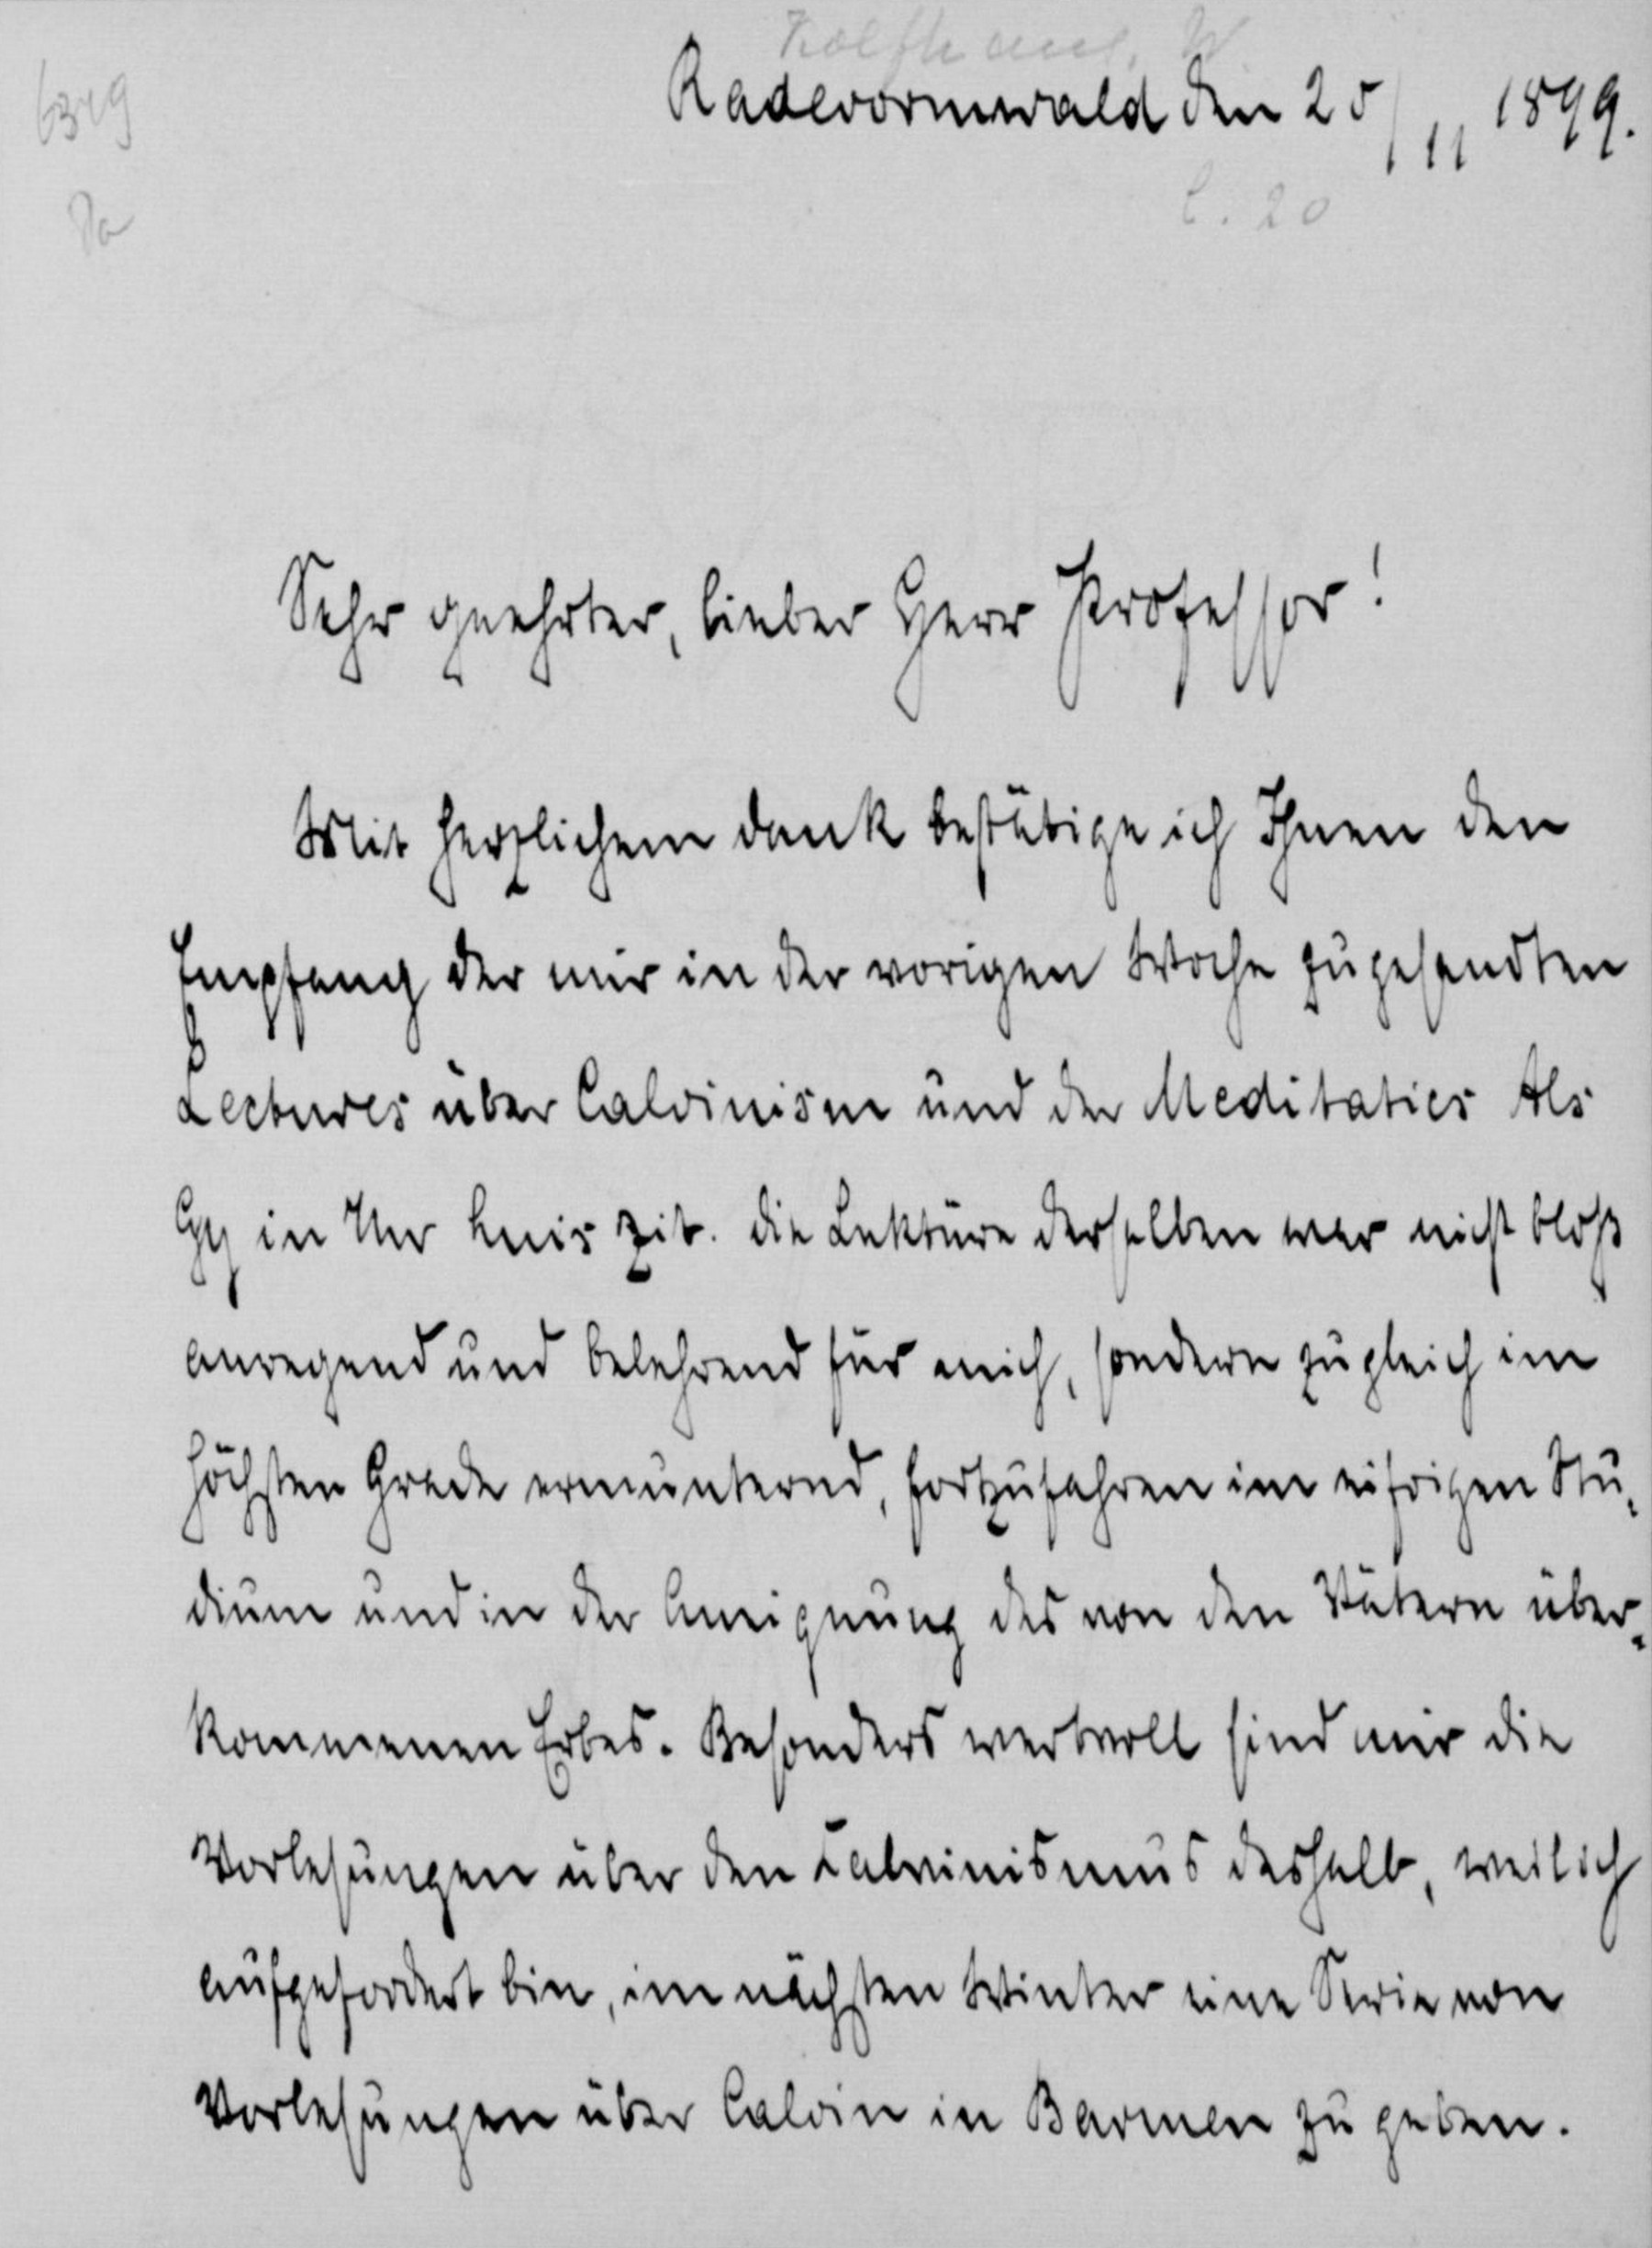 6319
Kolfhaus, W
Radevormwald den 25/11 1899.
b. 20
Sehr geehrter, lieber Herr Professor!
Mit herzlichem Dank bestätige ich Ihnen den
Empfang der mir in der vorigen Woche zugesandten
Lectures über Calvinism und der Meditaties Als
Gy in Uw huis zit. Die Lektüre derselben war nicht bloß
anregend und belehrend für mich, sondern zugleich im
höchsten Grade ermunternd, fortzufahren im eifrigen Stu-
dium und in der Aneignung des von den Vätern über-
kommenen Erbes. Besonders wertvoll sind mir die
Vorlesungen über den Calvinismus deshalb, weil ich
aufgefordert bin, im nächsten Winter eine Serie von
Vorlesungen über Calvin in Barmen zu geben.